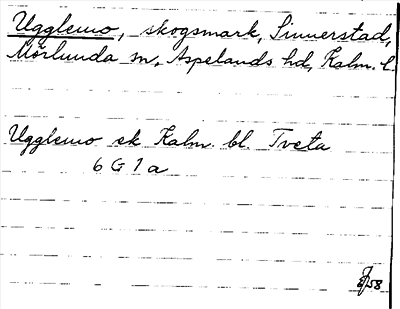 Ugglemo, skogsmark, Sinnerstad,
Mörlunda sn, Aspelands hd, Kalm. l.
Ugglemo ek Kalm. bl. Tveta
6 G 1 a
58